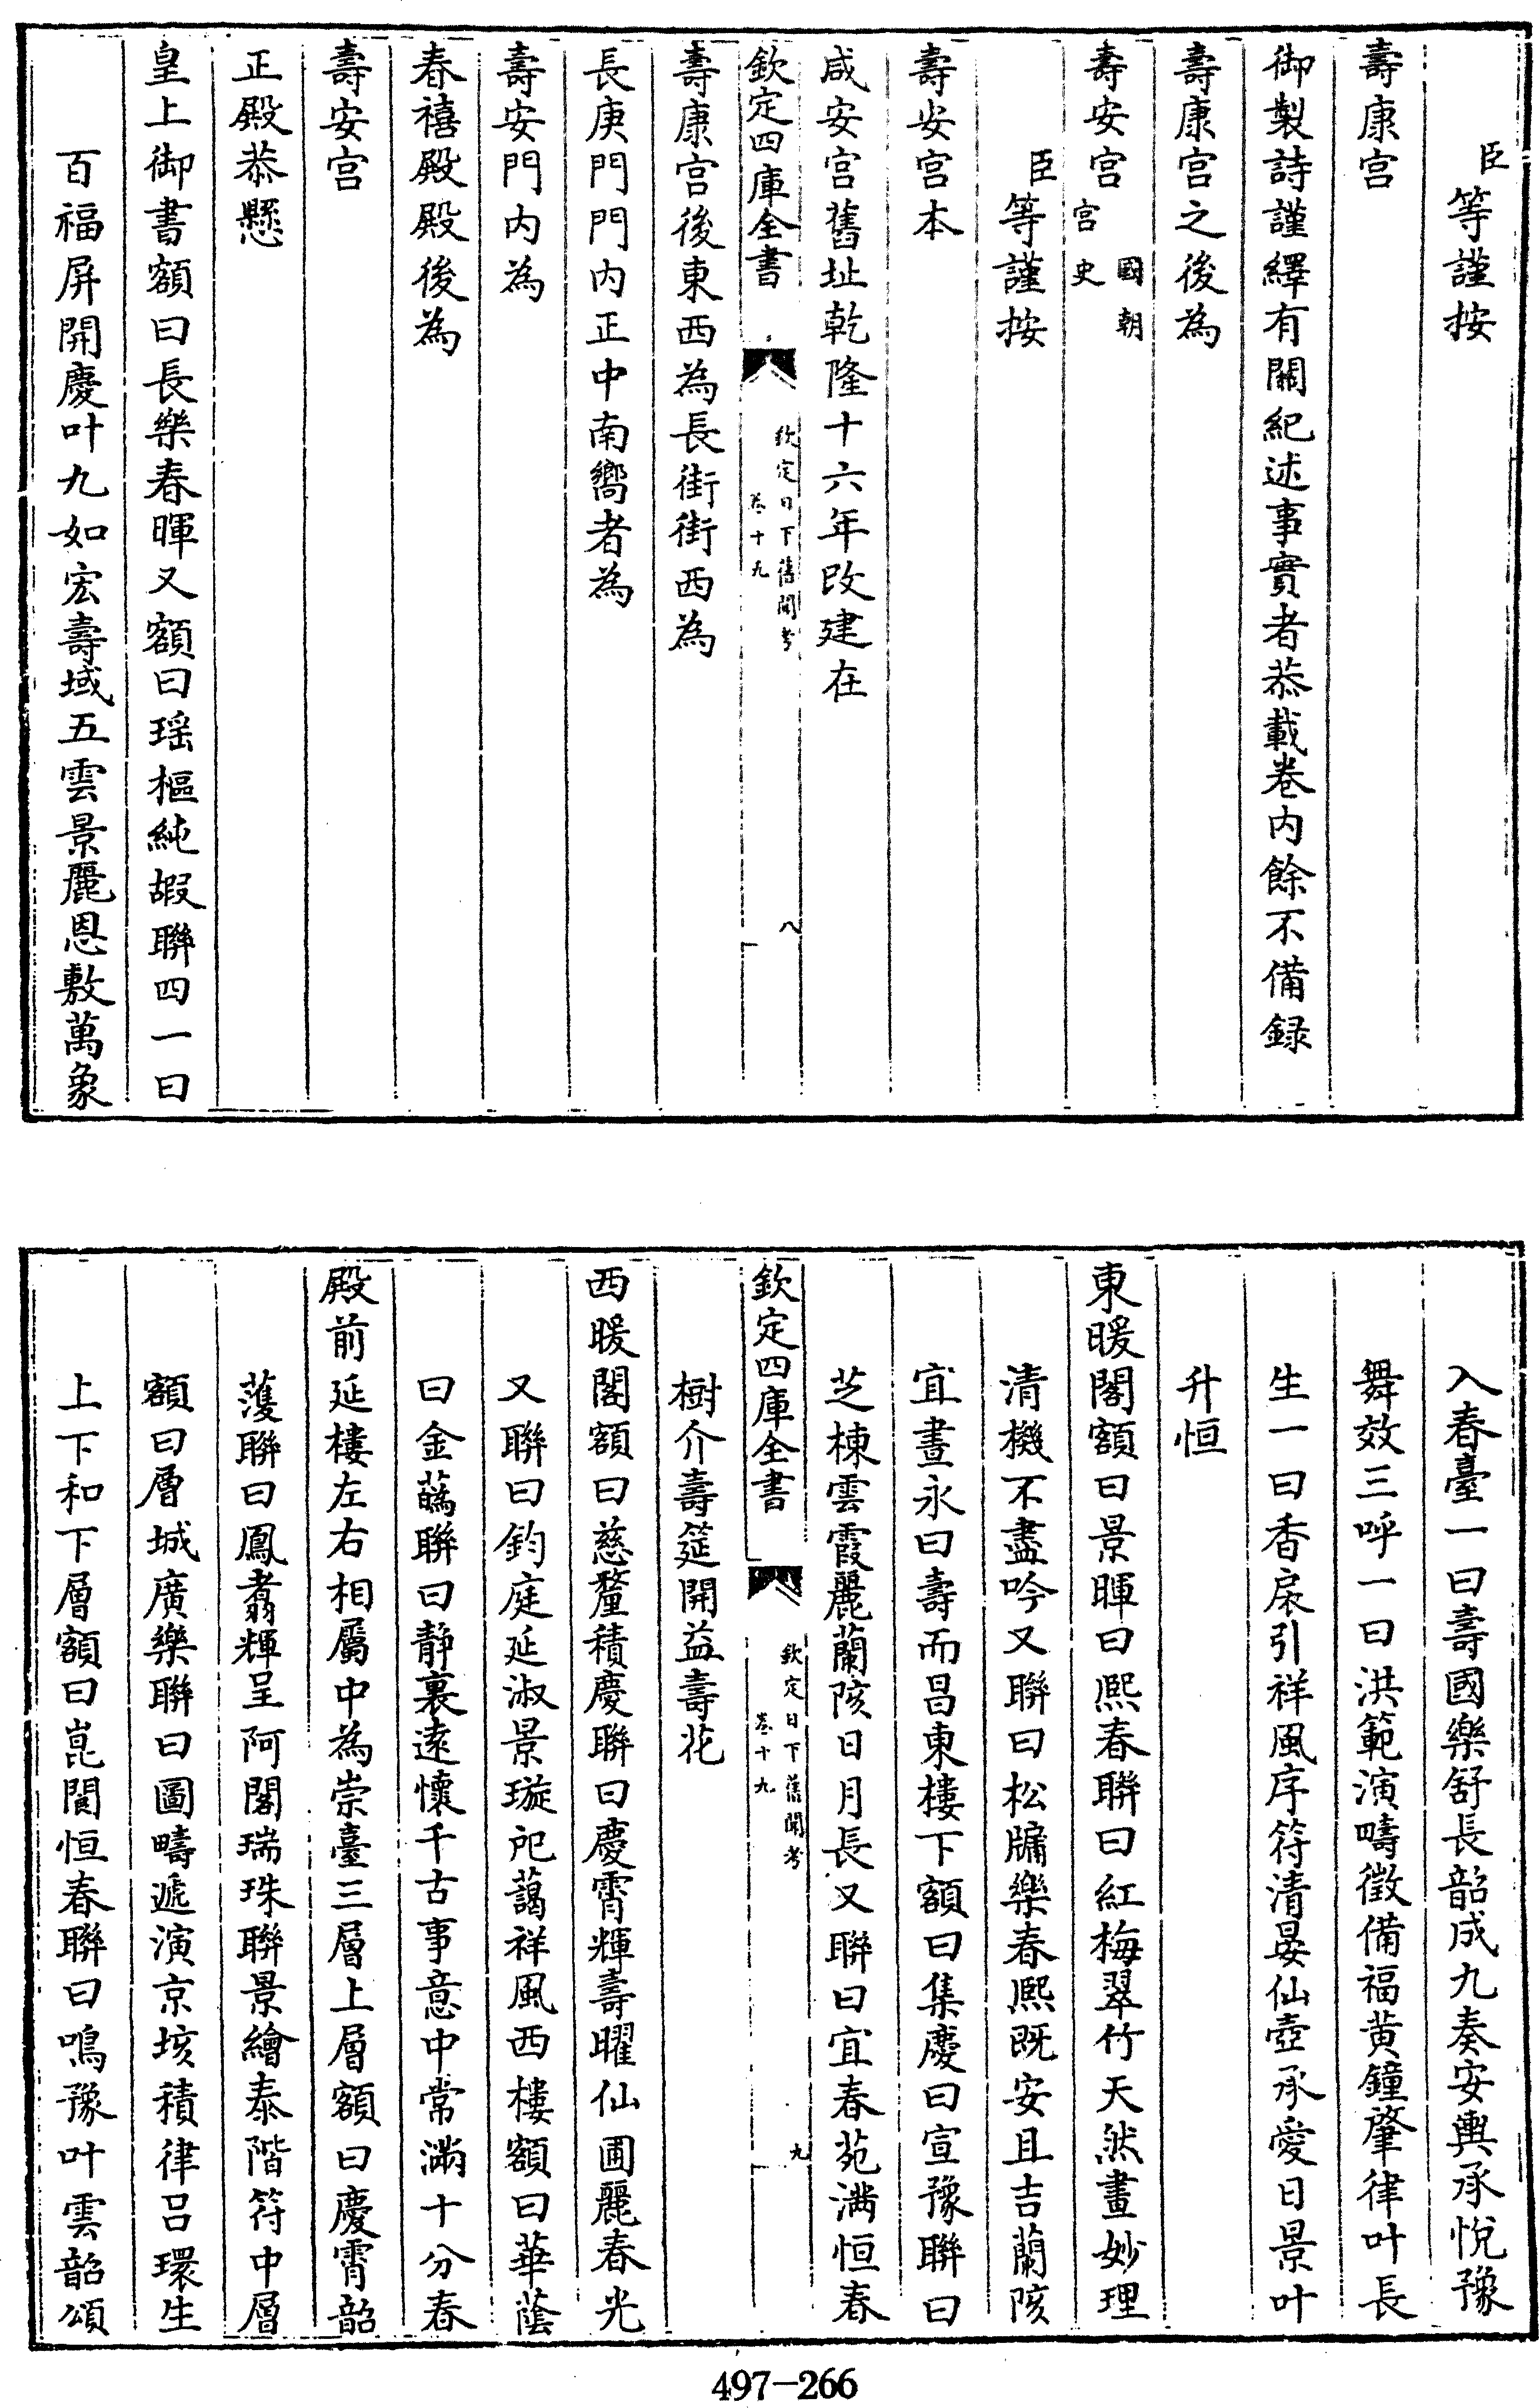 臣等謹按
壽康宫
御製詩謹繹有闗紀述事實者恭載卷内餘不備録
壽康宫之後為
壽安宫國朝宫史
臣等謹按
壽安宫本
咸安宫舊址乾隆十六年改建在
欽定四庫全書
欽定日下舊聞考
卷十九
八
壽康宫後東西為長街街西為
長庚門門内正中南嚮者為
壽安門内為
春禧殿殿後為
壽安宫
正殿恭懸
皇上御書額曰長樂春暉又額曰瑶樞純嘏聯四一曰
百福屏開慶叶九如宏壽域五雲景麗恩敷萬象
入春臺一曰壽國樂舒長韶成九奏安輿承悅豫
舞效三呼一曰洪範演疇徵備福黄鐘肇律叶長
生一曰香扆引祥風序符清晏仙壺承愛日景叶
升恒
東暖閣額曰景暉曰熙春聯曰紅梅翠竹天然畫妙理
清機不盡吟又聯曰松牖樂春熙既安且吉蘭陔
宜晝永曰壽而昌東樓下額曰集慶曰宣豫聯曰
芝棟雲霞麗蘭陔日月長又聯曰宜春苑满恒春
欽定四庫全書
欽定日下舊聞考
卷十九
九
樹介壽筵開益壽花
西暖閣額曰慈釐積慶聯曰慶霄輝壽曜仙圃麗春光
又聯曰鈞庭延淑景璇戺藹祥風西樓額曰華蔭
曰金蘤聯曰靜裏遠懷千古事意中常滿十分春
殿前延樓左右相屬中為崇臺三層上層額曰慶霄韶
頀聯曰鳳翥輝呈阿閣瑞珠聯景繪泰階符中層
額曰層城廣樂聯曰圖疇遞演京垓積律吕環生
上下和下層額曰崑閬恒春聯曰鳴豫叶雲韶頌
497-266